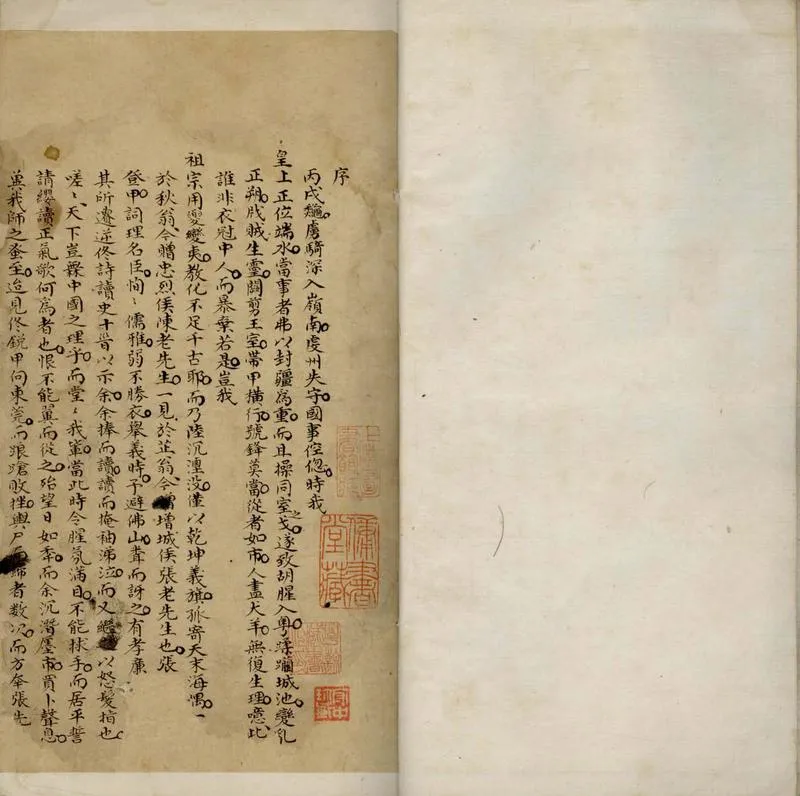 序
丙戌虜騎深入嶺南虔州失守國事倥偬時我
皇上正位端水當事者弗以封疆為重而且操同室之戈遂致胡腥入粵蹂躪城池變亂
正朔戕賊生靈闘剪王室帶甲橫行號鋒莫當從者如市人盡犬羊無復生理噫此
誰非衣冠中人而暴棄若是豈我
祖宗用夏變夷教化不足千古耶而乃陸沉湮没僅以乾坤義旗孤寄天末海隅一
於秋翁今贈忠烈侯陳老先生一見於芷翁今增城侯張老先生也張
登甲詞理名臣恂〻儒雅弱不勝衣舉義時予避佛山聾而訝之有孝廉
其所遺逆佟詩讀史十首以示余余捧而讀讀而掩袖涕泣而又繼以怒髮指也
嗟〻天下豈無中國之理乎而堂〻我軍當此時令腥氛滿目不能拔手而居平誓
請纓讀正氣歌何為者也恨不能翼而從之殆望日如年而余沉潛廛市買卜聲息
蓋我師之蚤至迨見佟銳甲向東莞而踉蹌敗挫輿尸而歸者数次而方拿張先
儒書堂藏